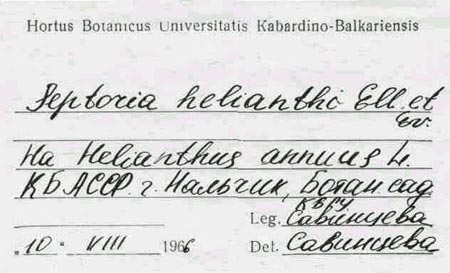 Hortus Botanicus Universitatis Kabardino-Balkariensis
Septoria helianthi Ell. et
Ev.
На Helianthus annuus L.
КБАССР. г. Нальчик, Ботан сад
КБГУ
Leg. Савинцева
"10" VIII 1966 Det. Савинцева